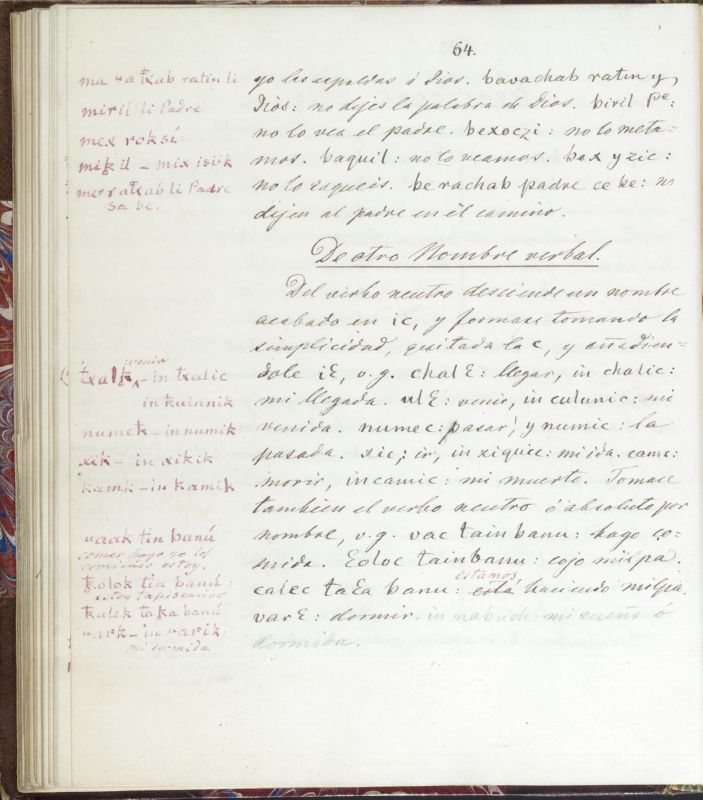 64.
ma va txab ratin li
miril li Padre
mex roksí
mikil - mix isiik
mex ratxab li Padre
sa be.
yo las espaldas á Dios. bavachab ratin y
Dios: no dijes la palabra de Dios. biril Pe:
no lo vea el padre. bexoczi: no lo meta=
mos. baquil: no lo veamos. bex yzic:
no lo saqueis. be rachab padre ce be: no
dijen al padre en el camino.
De otro Nombre verbal.
Del verbo neutro desciende un nombre
acabado en ic, y formase tomando la
simplicidad, quitada la c, y añadien=
dole iE, v.g. chalE: llegar, in chalic:
mi llegada. ulE: venir, in culunic: mi
venida. numec: pasar, y numic: la
pasada. xic; ir, in xiquic: mi ida. came:
morir, in camic: mi muerte. Tomase
tambien el verbo neutro ó absoluto por
nombre, v.g. vac tain banu: hago co=
mida. Eoloc tain banu: cojo milpa.
calec taEa banu: está haciendo milpa.
estános
varE: dormir in nabuch: mi sueño ó
dormida.
venir
txalk - in txalic
in kulunik
numek - in numik
xik - in xikik
kamk - in kamik
vaak tin banú
comer hago yo los
comiendo estoy.
kolok tin banú:
estoy tapiscando
kalek taka banú
vark - in varik:
mi dormida